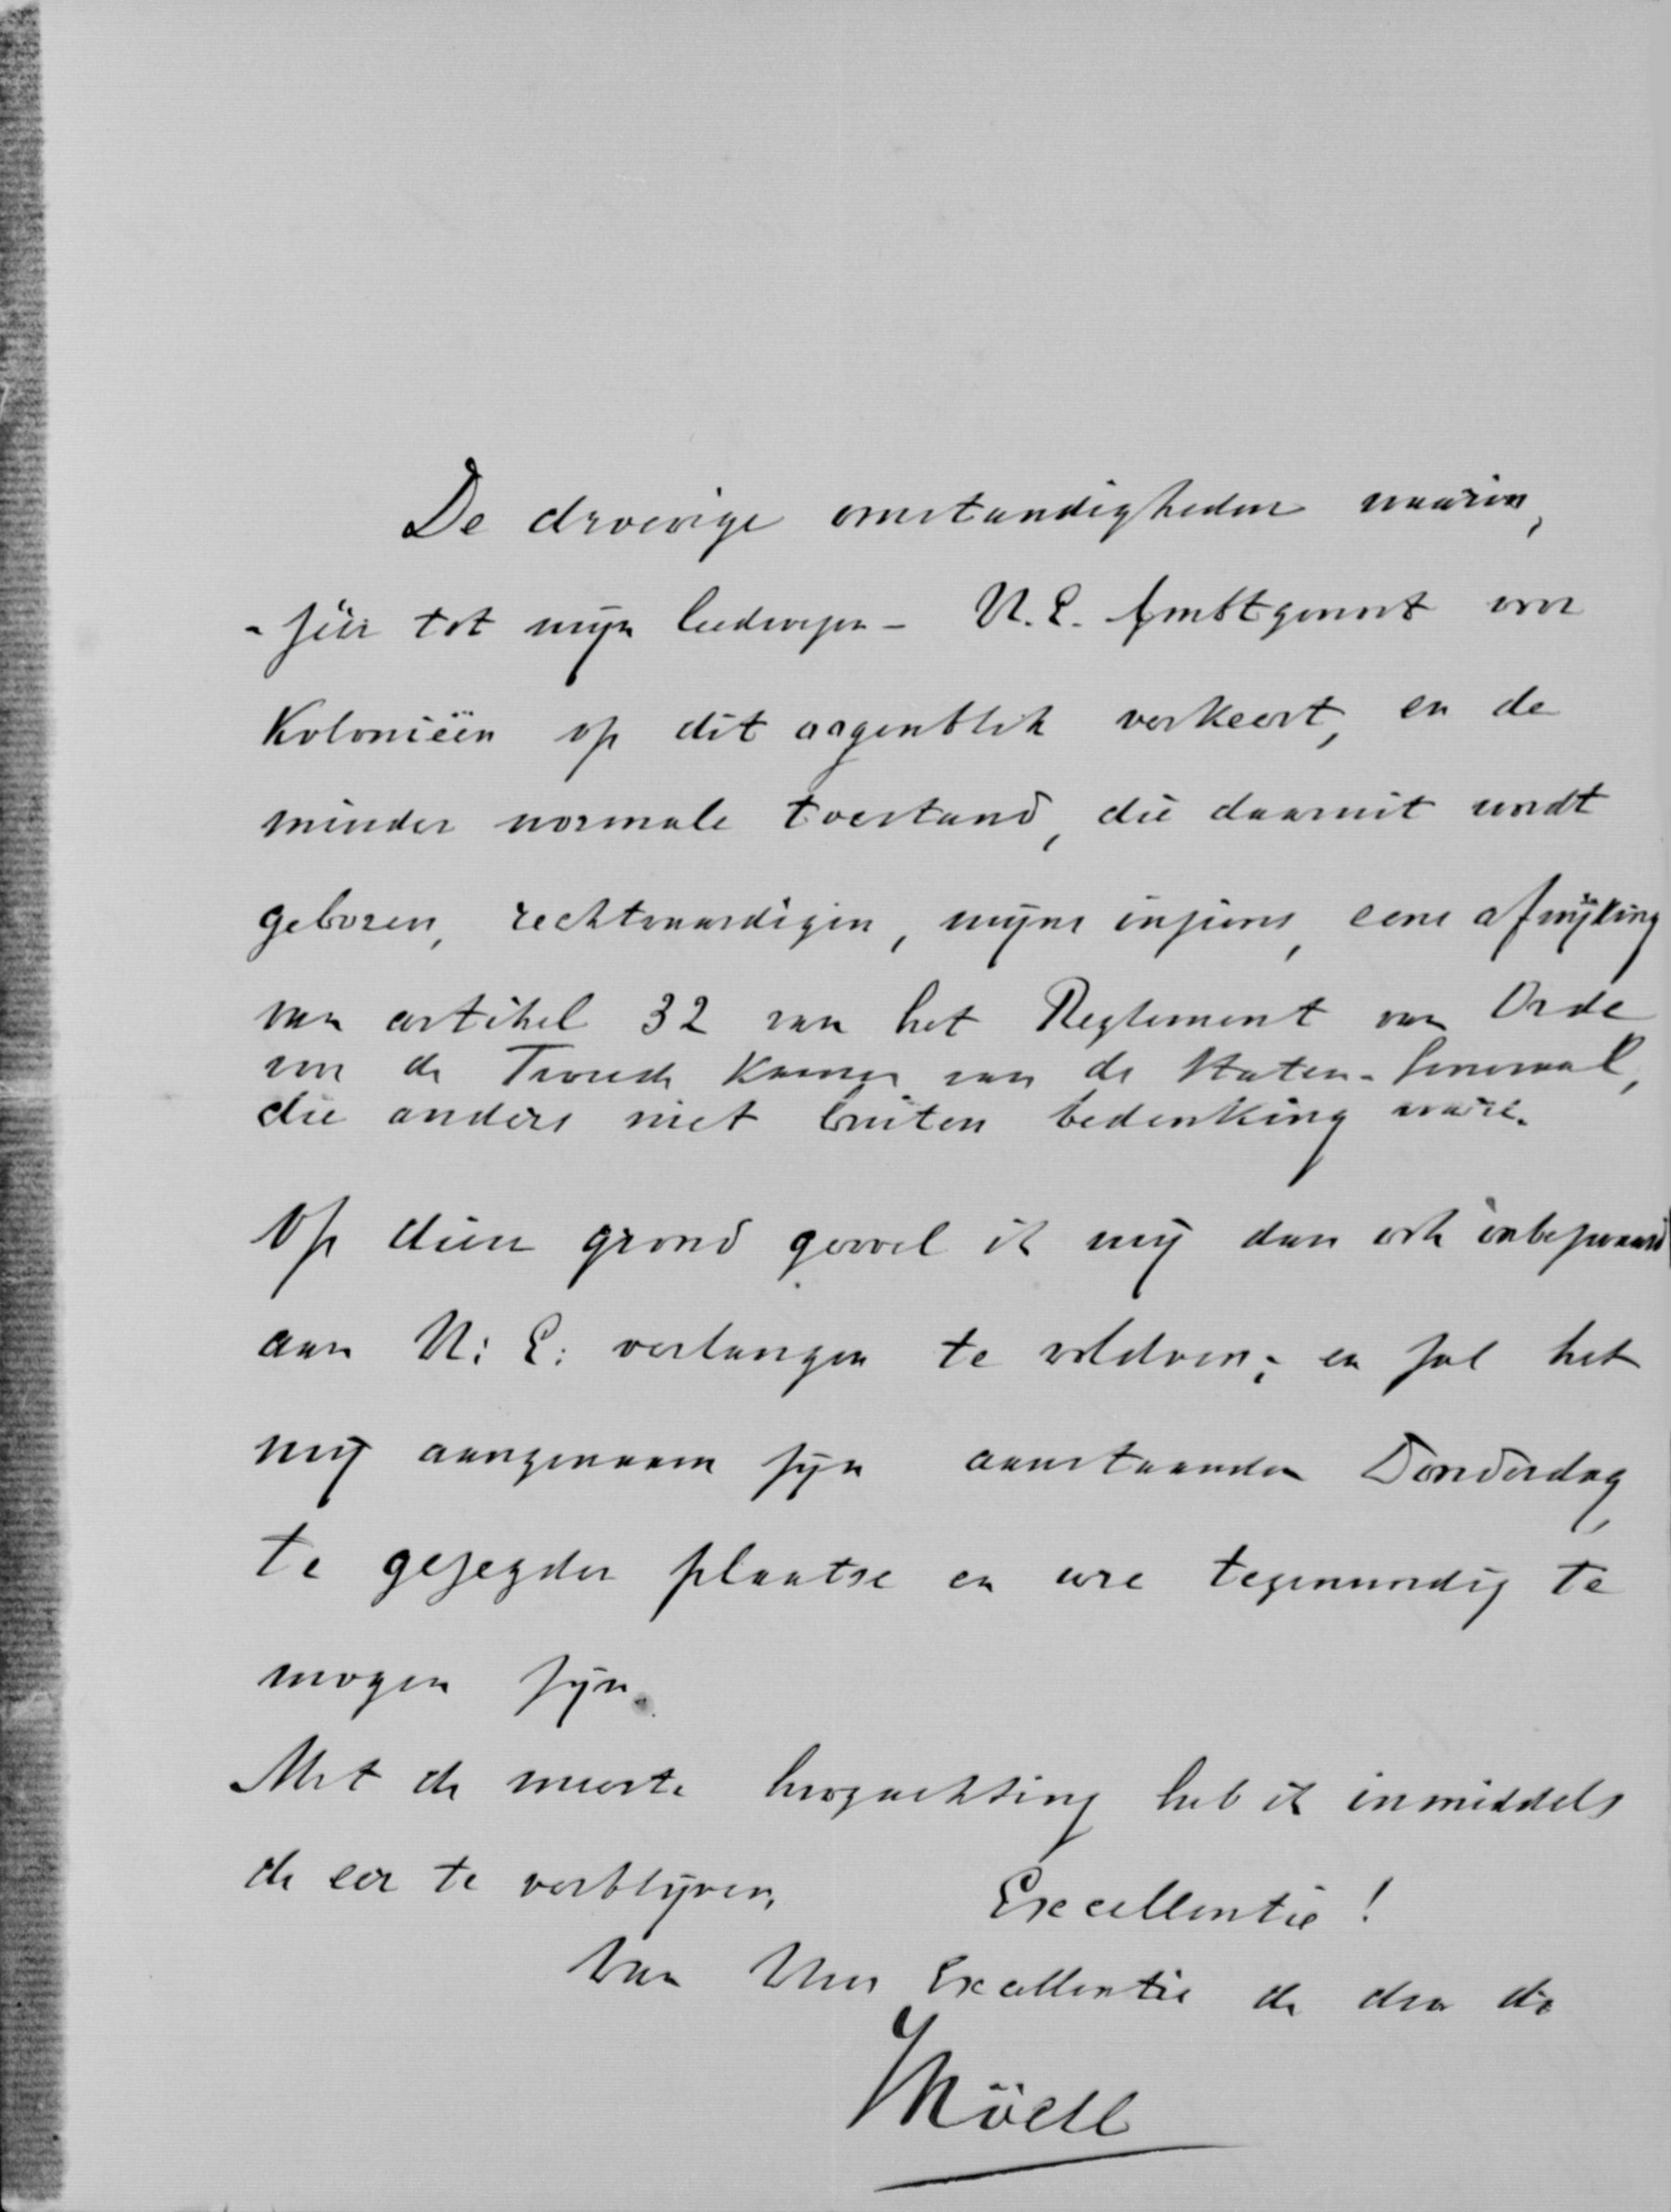 De droevige omstandigheden waarin,
- zeer tot mijn leedwezen - U.E. Ambtgenoot voor
Koloniëen op dit oogenblik verkeert, en de
minder normale toestand, die daaruit wordt
geboren, rechtvaardigen, mijns inziens, eene afwijking
van artikel 32 van het Reglement van Orde
voor de Tweede Kamer van de Staten-Generaal,
die anders niet buiten bedenking ware.
Op dien grond gevoel ik mij dan ook onbezwaard
aan U: E: verlangen te voldoen; en zal het
mij aangenaam zijn aanstaanden Donderdag,
te gezegder plaatse en ure tegenwoordig te
mogen zijn.
Met de meeste hoogachting heb ik inmiddels
de eer te verblijven,
Excellentie!
Van Uwe Excellentie de dw di